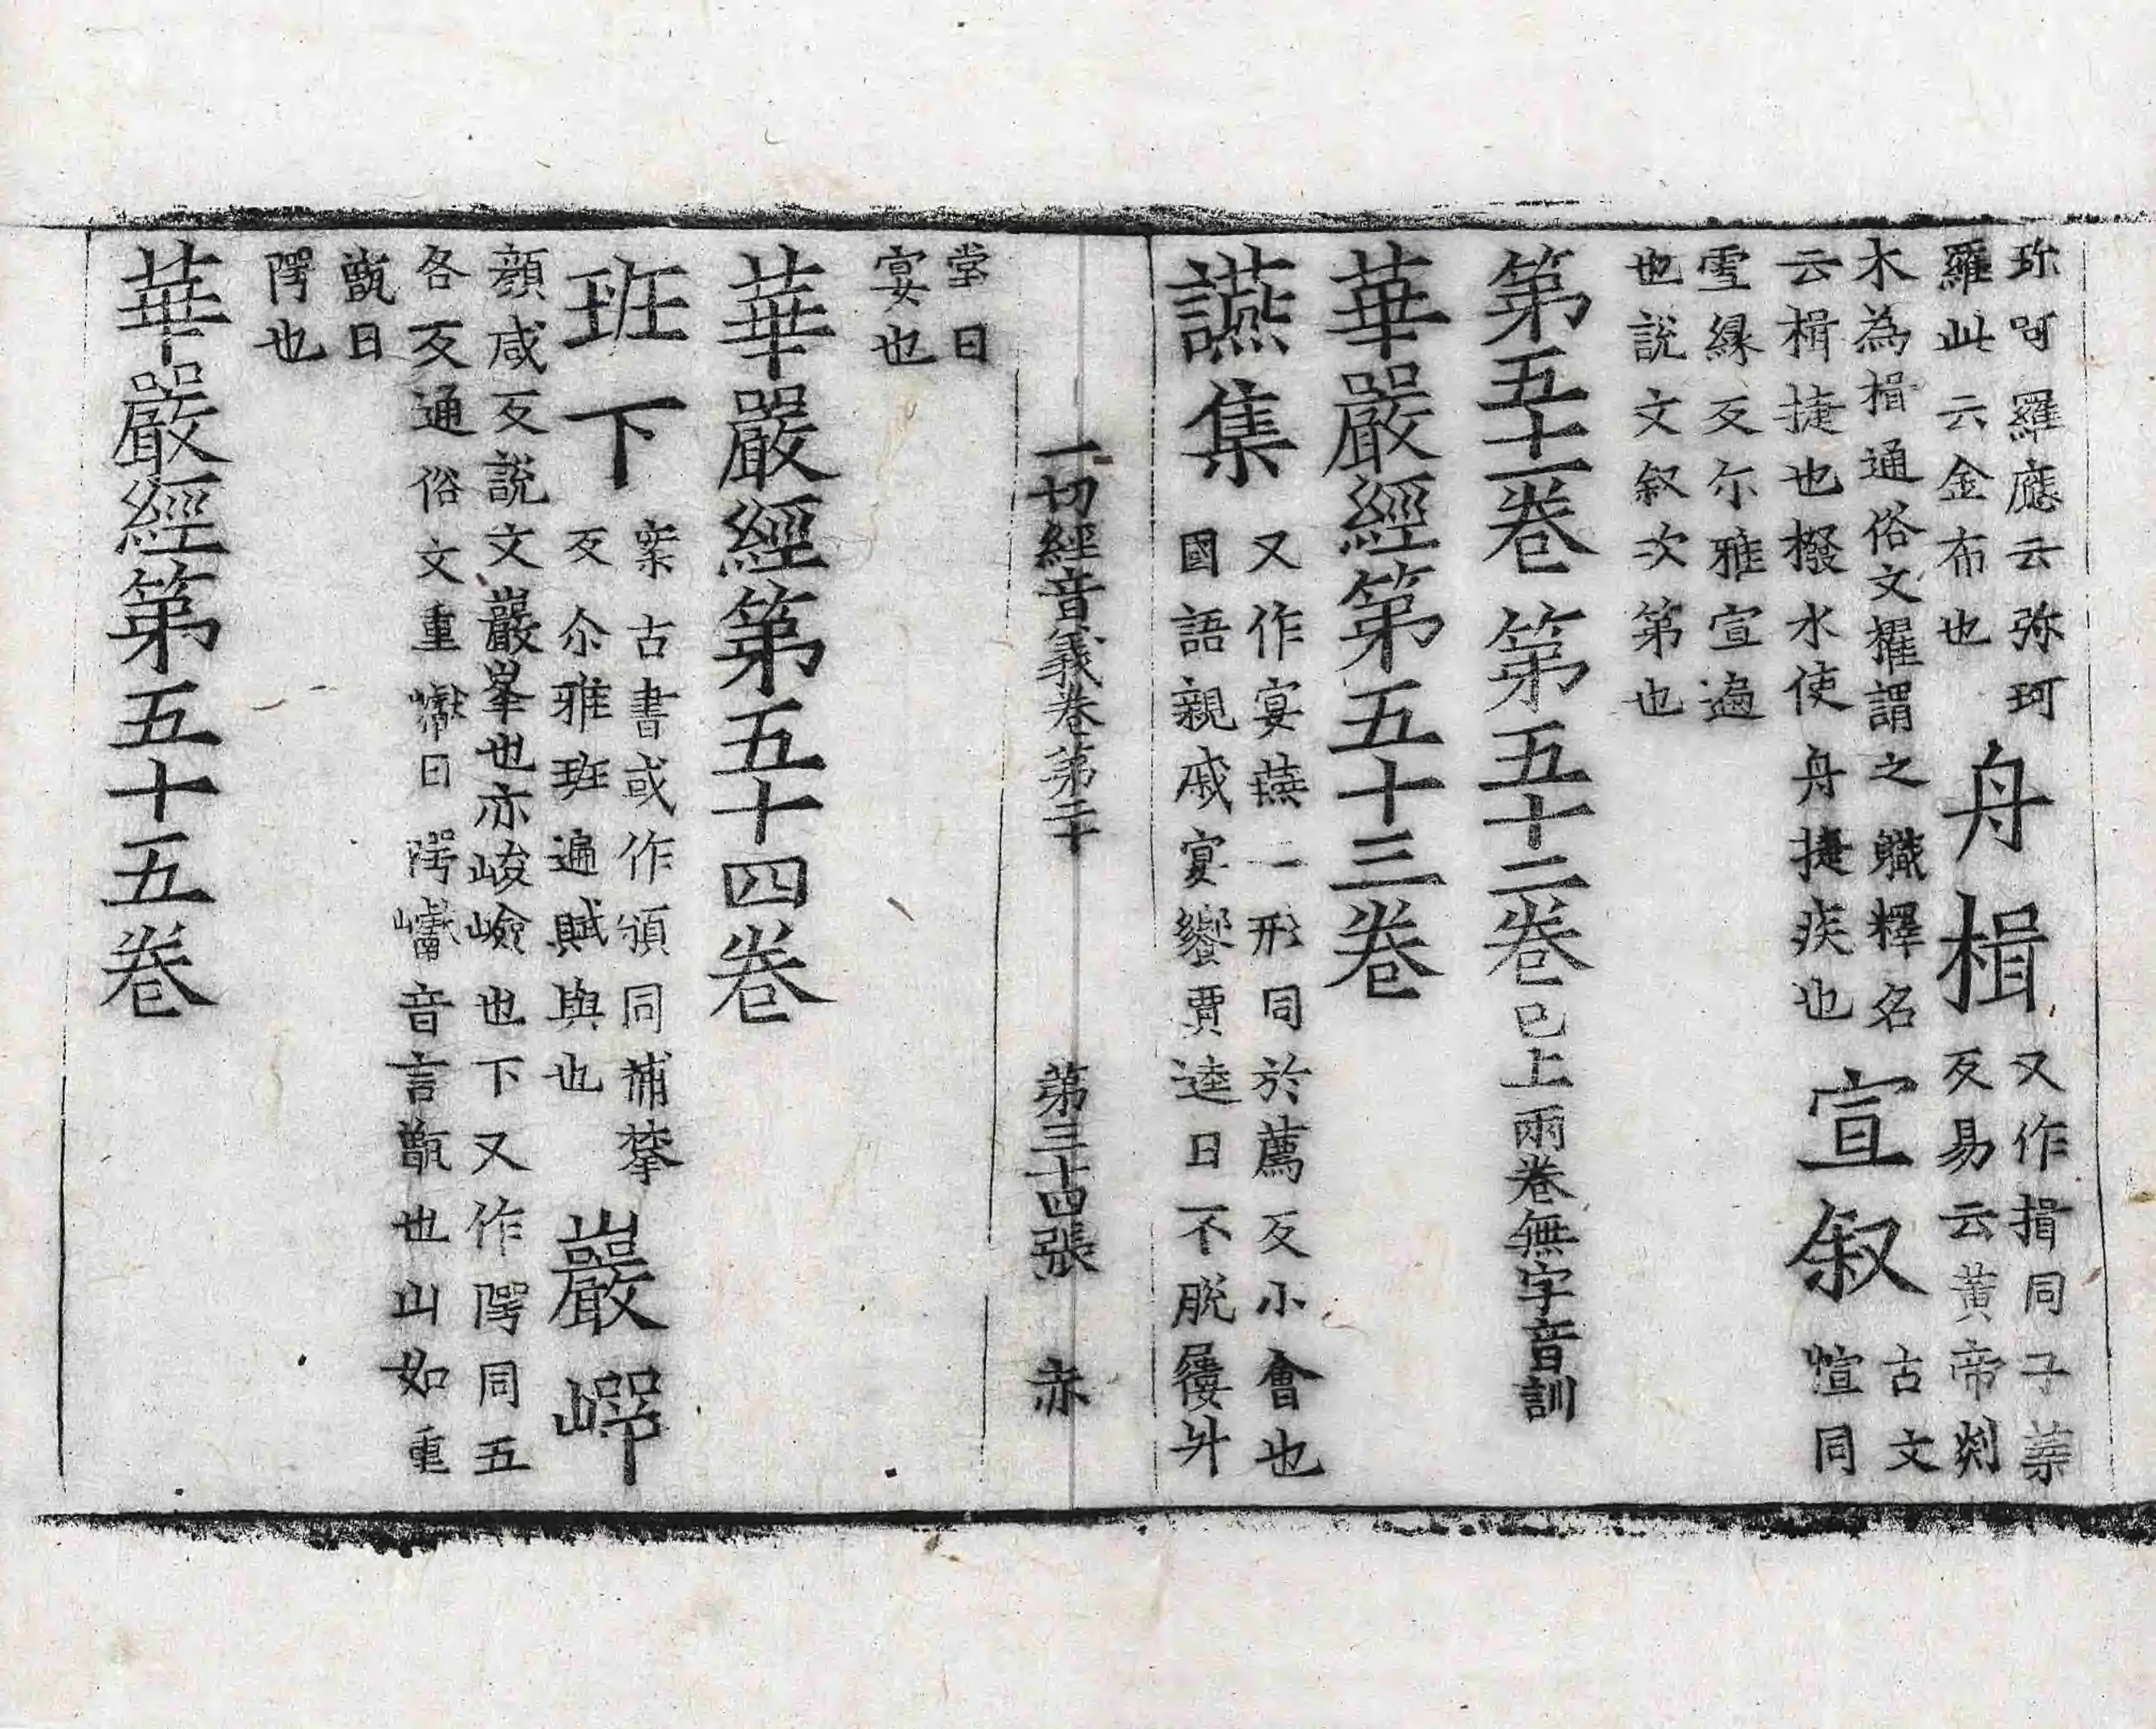 珎呵羅應云弥珂
羅此云金布也
舟楫
又作揖同子葉
反易云黃帝剡
木為楫通俗文擢謂之䑎釋名
云楫捷也撥水使舟捷疾也
宣叙
古文
愃同
雪緣反尒雅宣遍
也說文叙次第也
第五十一卷 第五十二卷 已上兩卷無字音訓
華嚴經第五十三卷
讌集
又作宴燕二形同於薦反小會也
國語親戚宴饗賈逵曰不脫屨升
一切經音義卷第二十 第三十四張 赤
堂曰
宴也
華嚴經第五十四卷
班下
案古書或作頒同補𡘇
反尒雅班遍賦與也
巖㟧
顏咸反說文巖峯也亦峻嶮也下又作㗁同五
各反通俗文重巘曰㗁巘音言甑也山如重
甑曰
㗁也
華嚴經第五十五卷